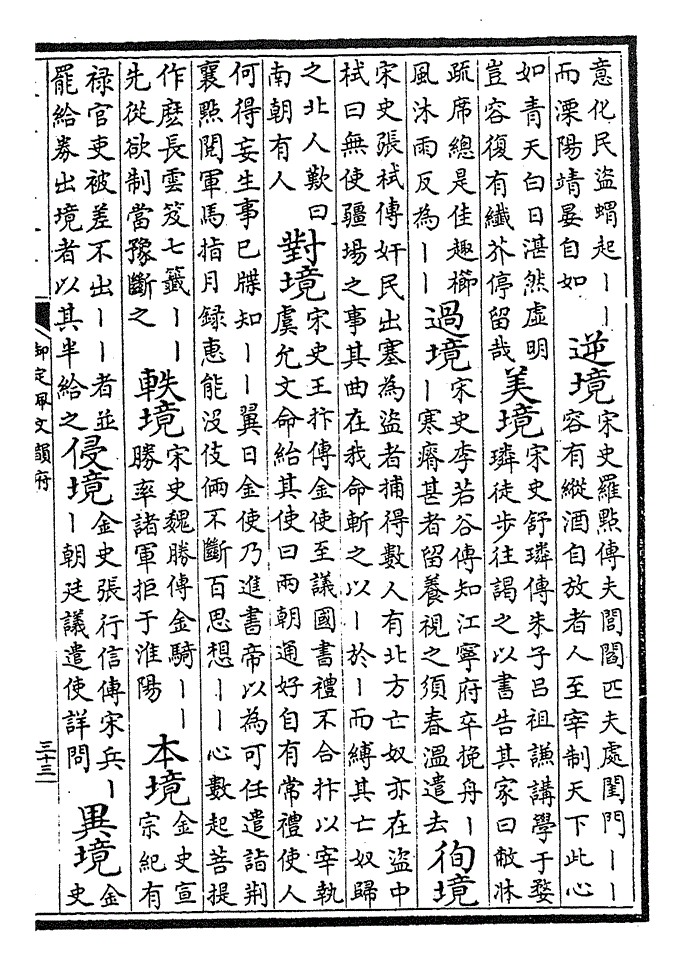 意化民盜蝟起——
而溧陽靖晏自如
逆境
宋史羅點傳夫閭閻匹夫處閨門——
容有縱酒自放者人至宰制天下此心
如青天白日湛然虛明
豈容復有纖芥停留哉
美境
宋史舒璘傳朱子呂祖謙講學于婺
璘徒步往謁之以書告其家曰敝牀
疏席總是佳趣櫛
風沐雨反為——
過境
宋史李若谷傳知江寧府卒挽舟—
—寒瘠甚者留養視之須春溫遣去
徇境
宋史張栻傳奸民出塞為盜者捕得數人有北方亡奴亦在盜中
栻曰無使疆場之事其曲在我命斬之以—於—而縛其亡奴歸
之北人歎曰
南朝有人
對境
宋史王抃傳金使至議國書禮不合抃以宰執
虞允文命紿其使曰兩朝通好自有常禮使人
何得妄生事已牒知——翼日金使乃進書帝以為可任遣詣荆
襄點閱軍馬指月録惠能没伎倆不斷百思想——心數起菩提
作麽長雲笈七籤——
先從欲制當豫斷之
軼境
宋史魏勝傳金騎——
勝率諸軍拒于淮陽
本境
金史宣
宗紀有
禄官吏被差不出——者並
罷給券出境者以其半給之
侵境
金史張行信傳宋兵—
—朝廷議遣使詳問
異境
金
史
御定佩文韻府
三十三